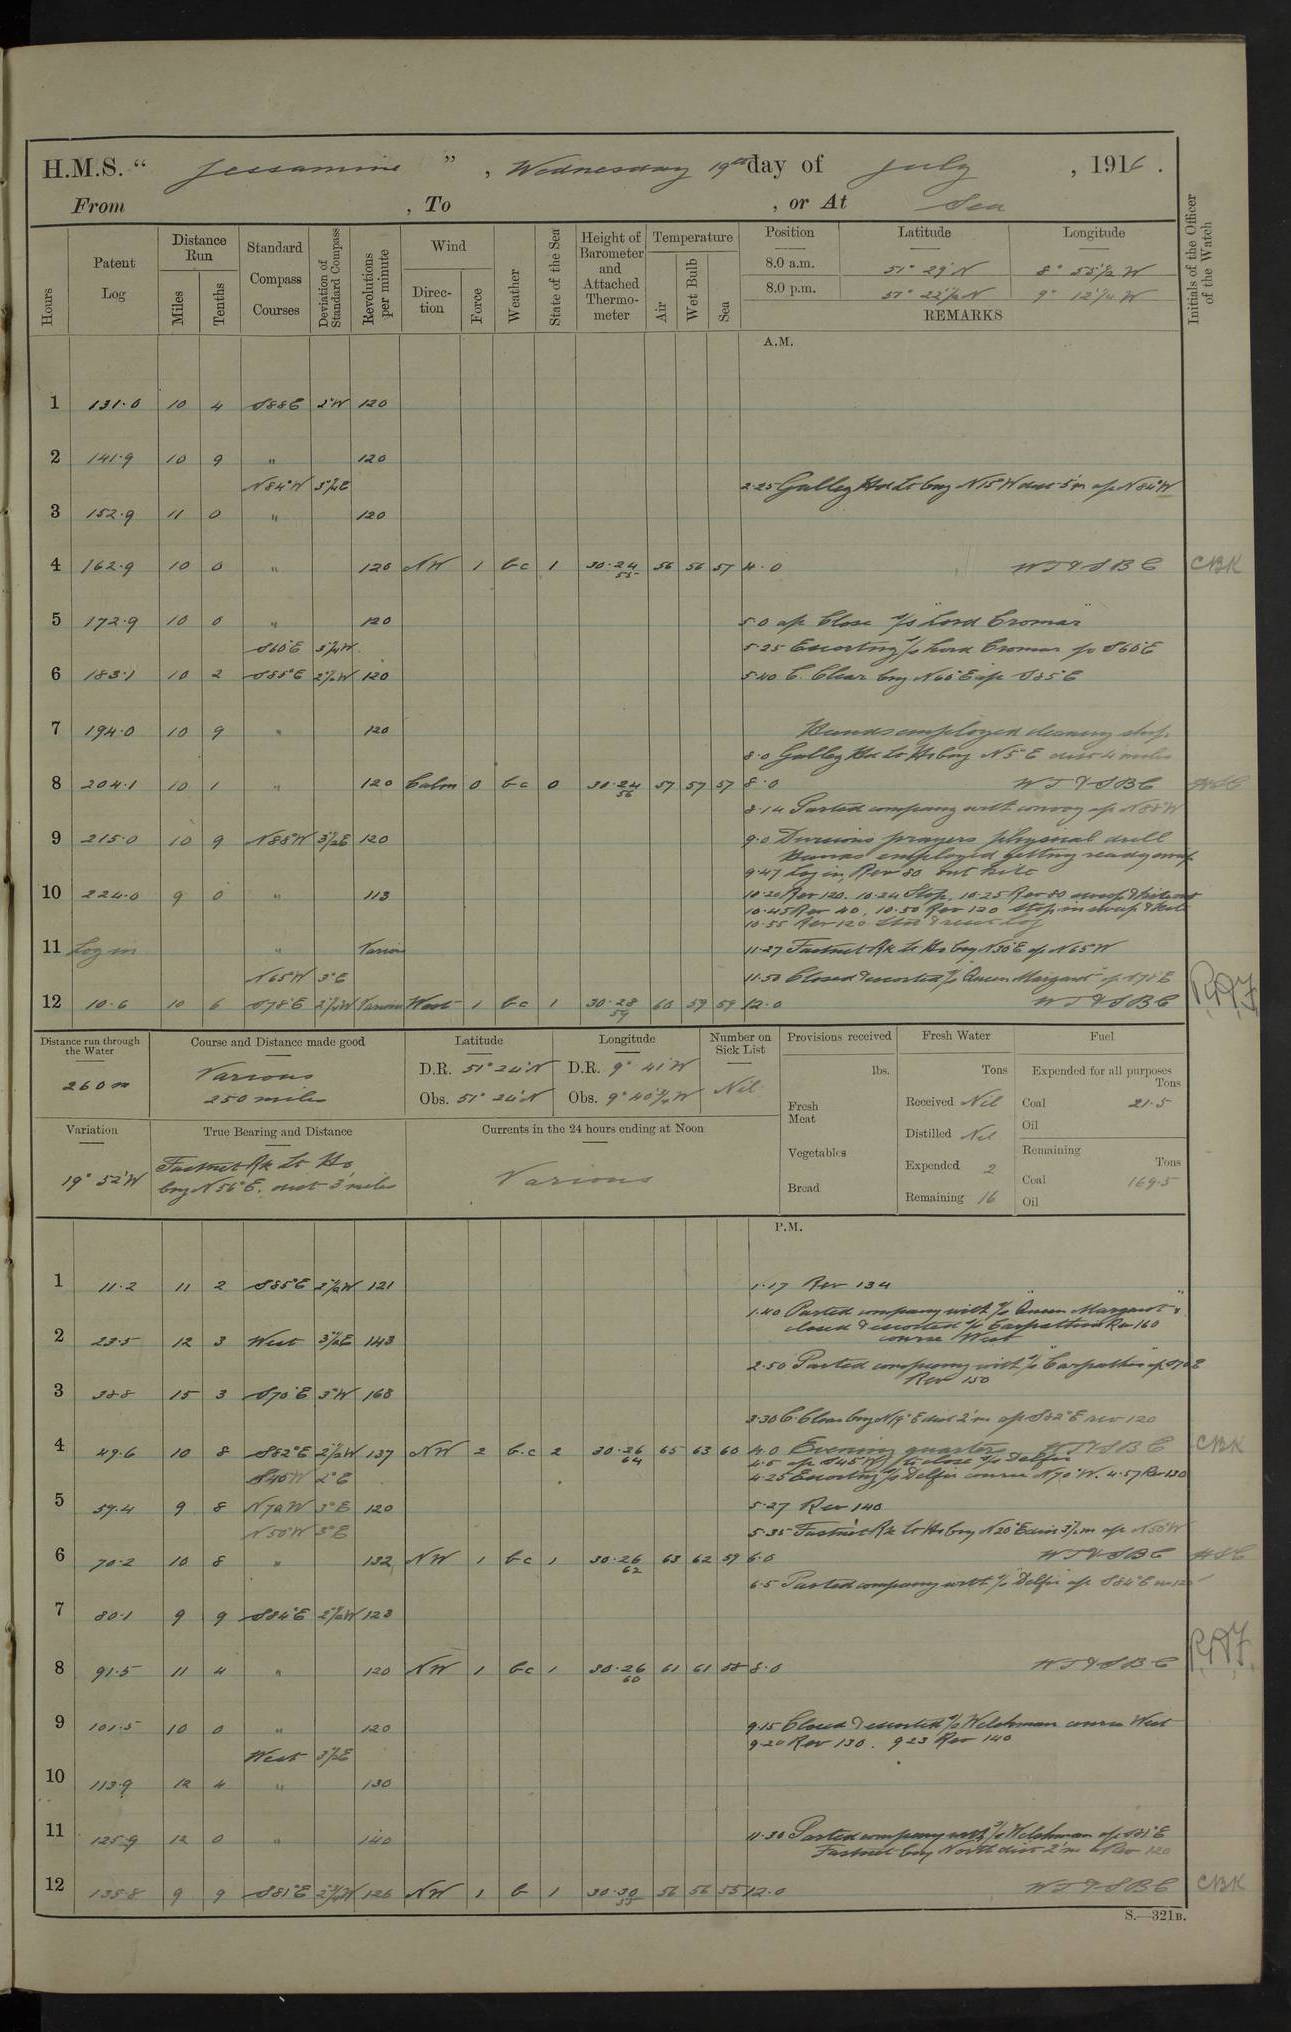 H.M.S. “ Jessamine ” , Wednesday 19th day of July , 1916 .
From , To , or At Sea
Hours Patent Log Distance Run Miles Tenths Standard Compass Courses Deviation of Standard Compass Revolutions per minute Wind Direction Force Weather State of the Sea Height of Barometer and Attached Thermometer Temperature Air Wet Bulb Sea Position Latitude Longitude Initials of the Officer of the Watch
8.0 a.m. 51° 29' N 8° 55½ W
8.0 p.m. 51° 22½ N 9° 12¼ W
REMARKS
A.M.
1 131.0 10 4 S88E 2°W 120
2 141.9 10 9 " 120
N84°W 3½E 2.25 Galley Hd Lt brg N15°W dist 5'm a/c N84°W
3 152.9 11 0 " 120
4 162.9 10 0 " 120 NW 1 bc 1 30.24 55 56 56 57 4.0 WT&SBC CBK
5 172.9 10 0 " 120 5.0 a/c Close s/s "Lord Cromar"
S60°E 3½W 5.25 Escorting s/s Lord Cromar a/c S60°E
6 183.1 10 2 S85°E 2½W 120 5.40 C. Clear brg N60°E a/c S85°E
7 194.0 10 9 " 120 Hands employed cleaning ship.
8.0 Galley Hd Lt Ho brg N5°E dist 4 miles
8 204.1 10 1 " 120 Calm 0 bc 0 30.24 56 57 57 57 8.0 WT&SBC
8.14 Parted company with convoy a/c N88°W
9 215.0 10 9 N88°W 3½E 120 9.0 Divisions prayers physical drill
Hands employed getting ready sweep
9.47 Log in, Rev 80 out kite
10 224.0 9 0 " 113 10.20 Rev 120. 10.24 Stop, 10.25 Rev 80 sweep & kite out
10.45 Rev 40, 10.50 Rev 120 Stop, in sweep & kite
10.55 Rev 120
11 Log in " Various 11.27 Fastnet Rk Lt Ho brg N30°E a/c N65°W
N65W 3°E 11.50 Closed & escorted s/s "Queen Margaret" a/c S78°E
12 10.6 10 6 S78°E 2½W Various West 1 bc 1 30.28 59 60 59 59 12.0 WT&SBC
Distance run through the Water Course and Distance made good Latitude Longitude Number on Sick List Provisions received Fresh Water Fuel
260 m Various 250 miles D.R. 51° 24' N D.R. 9° 41' W Nil
Obs. 51° 24' N Obs. 9° 40¾ W
lbs. Tons Expended for all purposes Tons
Fresh Meat Received Nil Coal 21.5
Oil
Distilled Nil
Vegetables Expended 2 Remaining Tons
Bread Remaining 16 Coal 169.5
Oil
Variation True Bearing and Distance Currents in the 24 hours ending at Noon
19° 52' W Fastnet Rk Lt Ho
brg N56°E. dist 3' miles
Various
P.M.
1 11.2 11 2 S85°E 2½W 121 1.17 Rev 134
1.40 Parted company with s/s "Queen Margaret" &
closed & escorted s/s Carpathian Rev 160
course West
2 23.5 12 3 West 3½E 143
2.50 Parted company with s/s "Carpathian" a/c S70E
Rev 150
3 38.8 15 3 S70°E 3°W 168
3.30 C. Clear brg N19°E dist 2'm a/c S82°E rev 120
4 49.6 10 8 S82°E 2½W 137 NW 2 b.c 2 30.26 64 65 63 60 4.0 Evening quarters WT&SBC CBK
4.5 a/c S45°W to close s/s Delfin
S40W 2°E 4.25 Escorting s/s Delfin course N70°W. 4.57 Rev 130
5 59.4 9 8 N70W 3°E 120 5.27 Rev 140
N50°W 3°E 5.35 Fastnet Rk Lt Ho brg N20°E dist 3½m a/c N50°W
6 70.2 10 8 " 132 NW 1 bc 1 30.26 62 63 62 59 6.0 WT&SBC
6.5 Parted company with s/s "Delfin" a/c S84°E rev 120
7 80.1 9 9 S84°E 2½W 123
8 91.5 11 4 " 120 NW 1 bc 1 30.26 60 61 61 58 8.0 WT&SBC
9 101.5 10 0 " 120 9.15 Closed & escorted s/s Welshman course West
9.20 Rev 130. 9.23 Rev 140
West 3½E
10 113.9 12 4 " 130
11 125.9 12 0 " 140 11.30 Parted company with s/s Welshman a/c S81°E
Fastnet brg North dist 2'm Rev 120
12 135.8 9 9 S81°E 2½W 126 NW 1 b 1 30.30 55 56 56 55 12.0 WT&SBC CBK
S.—321B.